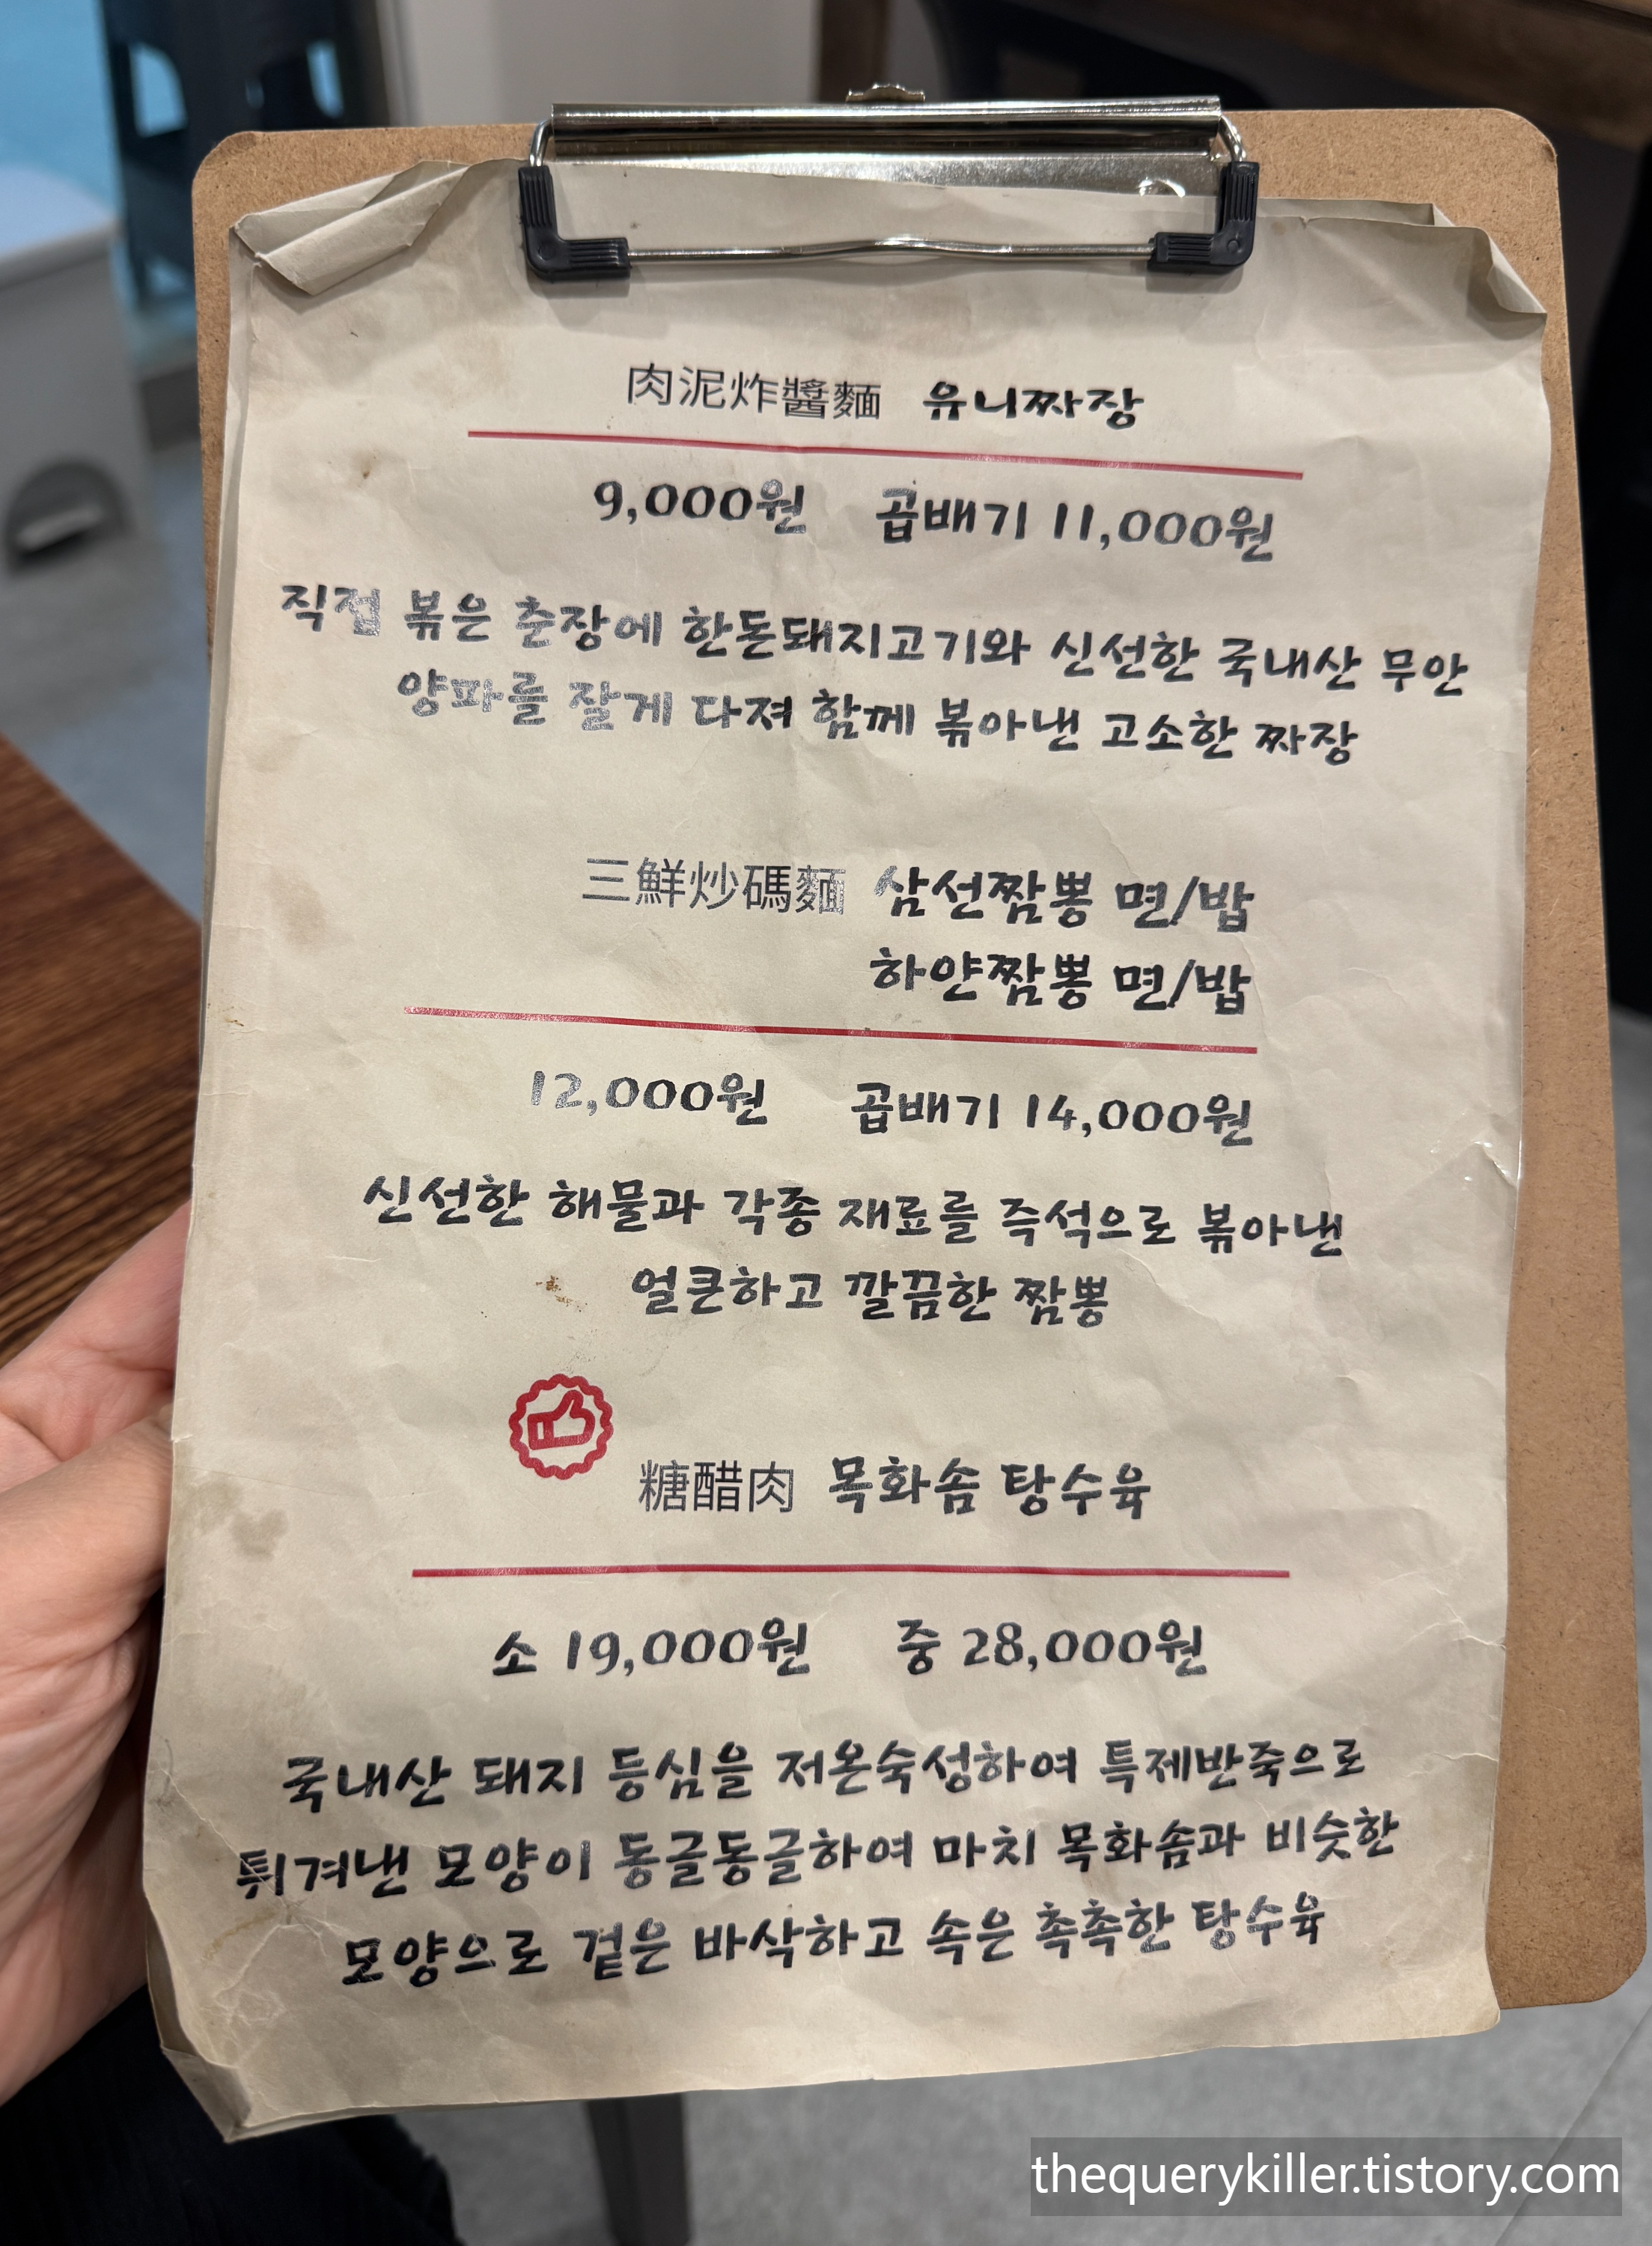 肉泥炸醬麵 유니짜장
9,000원 곱배기 11,000원
직접 볶은 춘장에 한돈돼지고기와 신선한 국내산 무안
양파를 잘게 다져 함께 볶아낸 고소한 짜장
三鮮炒碼麵 삼선짬뽕 면/밥
하얀짬뽕 면/밥
12,000원 곱배기 14,000원
신선한 해물과 각종 재료를 즉석으로 볶아낸
얼큰하고 깔끔한 짬뽕
糖醋肉 목화솜 탕수육
소 19,000원 중 28,000원
국내산 돼지 등심을 저온숙성하여 특제반죽으로
튀겨낸 모양이 동글동글하여 마치 목화솜과 비슷한
모양으로 겉은 바삭하고 속은 촉촉한 탕수육
thequerykiller.tistory.com